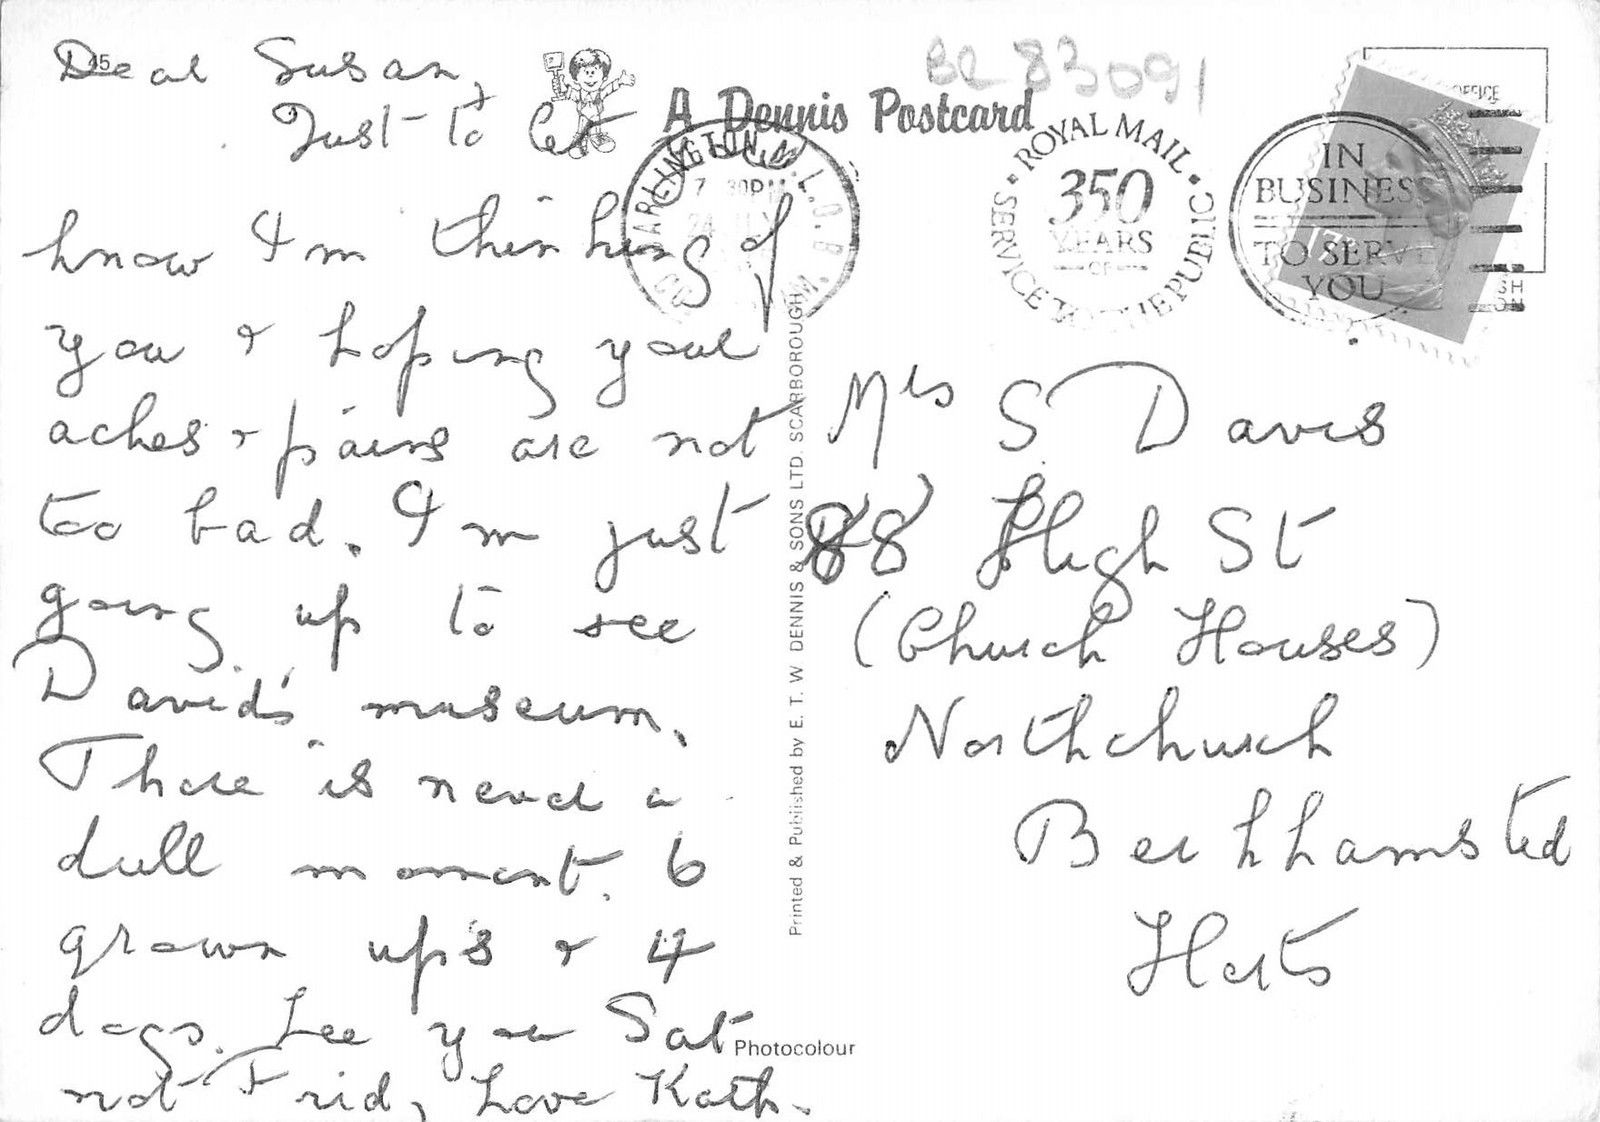 Dear Susan,
Just to let
know I'm thinking of
you & hoping your
aches & pains are not
too bad. I'm just
going up to see
David's museum.
There is never a
dull moment. 6
grown ups & 4
dogs. See you Sat
not Frid, Love Kath.
A Dennis Postcard
DARLINGTON
7 30PM
24
ROYAL MAIL
350
YEARS
OF
SERVICE TO THE PUBLIC
IN
BUSINESS
TO SERVE
YOU
Printed & Published by E. T. W DENNIS & SONS LTD. SCARBOROUGH
Mrs S Davis
88 High St
(Church Houses)
Northchurch
Berkhamsted
Herts
Photocolour